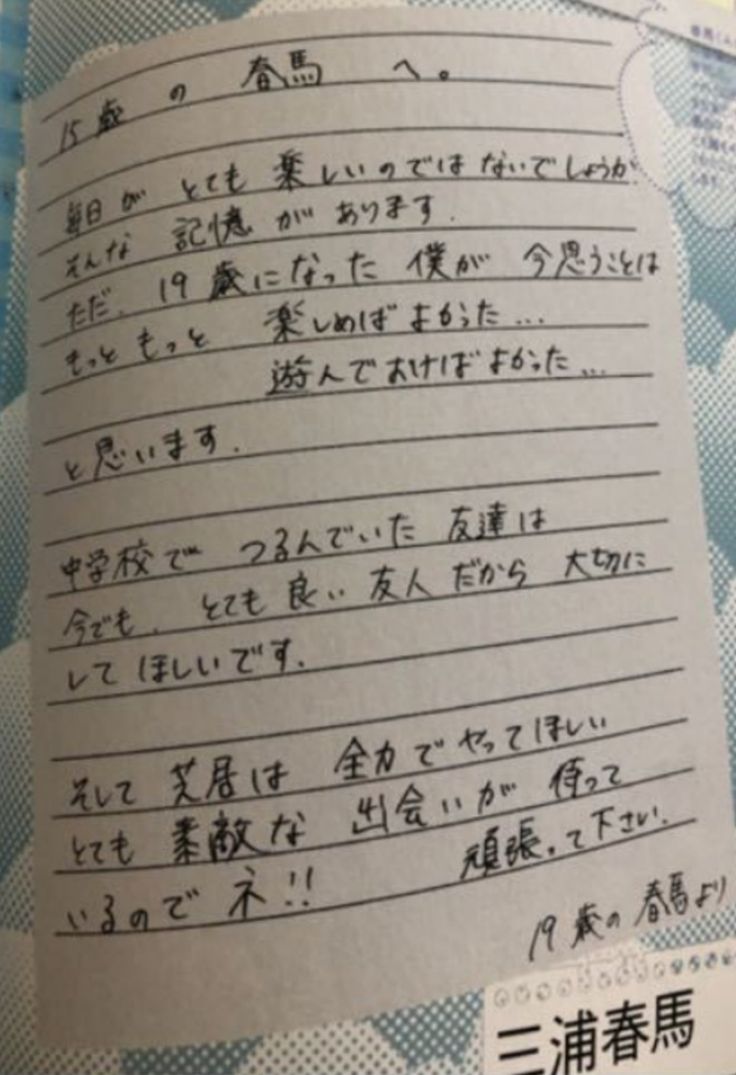 15歳の 春馬 へ。
毎日が とても 楽しいのではないでしょうか
そんな 記憶が あります.
ただ、19歳になった 僕が 今思うことは
もっと もっと 楽しめばよかった...
遊んでおけばよかった...
と思います.
中学校で つるんでいた 友達は
今でも、とても 良い 友人 だから 大切に
して ほしいです.
そして 芝居は 全力で やってほしい
とても 素敵な 出会いが 待って
いるので ネ!!
頑張って下さい.
19歳の 春馬より
三浦春馬